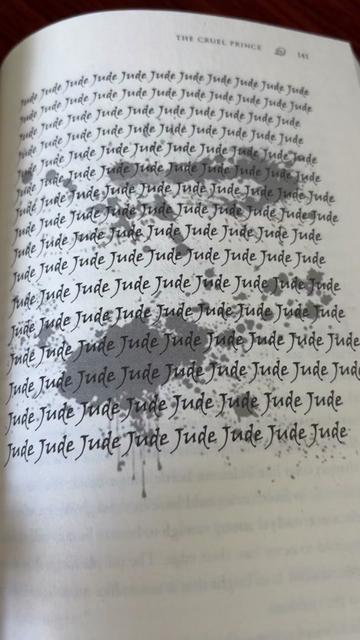 THE CRUEL PRINCE 145
Jude Jude Jude Jude Jude Jude Jude Jude Jude Jude
Jude Jude Jude Jude Jude Jude Jude Jude Jude Jude
Jude Jude Jude Jude Jude Jude Jude Jude Jude Jude
Jude Jude Jude Jude Jude Jude Jude Jude Jude Jude
Jude Jude Jude Jude Jude Jude Jude Jude Jude Jude
Jude Jude Jude Jude Jude Jude Jude Jude Jude Jude
Jude Jude Jude Jude Jude Jude Jude Jude Jude Jude
Jude Jude Jude Jude Jude Jude Jude Jude Jude Jude
Jude Jude Jude Jude Jude Jude Jude Jude Jude
Jude Jude Jude Jude Jude Jude Jude Jude Jude
Jude Jude Jude Jude Jude Jude Jude Jude Jude
Jude Jude Jude Jude Jude Jude Jude Jude Jude
Jude Jude Jude Jude Jude Jude Jude Jude Jude
Jude Jude Jude Jude Jude Jude Jude Jude Jude
Jude Jude Jude Jude Jude Jude Jude Jude
Jude Jude Jude Jude Jude Jude Jude Jude